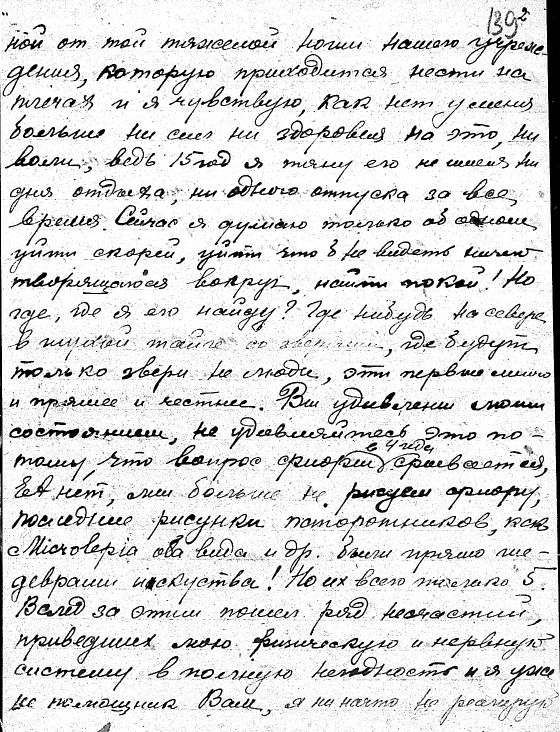 139 2
ной от той тяжелой ноши нашего учреж-
дения, которую приходится нести на
плечах и я чувствую, как нет у меня
больше ни сил ни здоровья на это, ни
воли, ведь 15 год я тяну его не имея ни
дня отдыха, ни одного отпуска за все
время. Сейчас я думаю только об одном
уйти скорей, уйти что б не видеть ничего
творящагося вокруг, найти покой! Но
где, где я его найду? Где нибудь на севере
в глухой тайге со зверями, где будут
только звери не люди, эти первые много
и прямее и честнее. Вы удивлены моим
состоянием, не удивляйтесь это по-
тому, что вопрос флоры в 4 года срывается,
Ея нет, мы больше не рисуем флору,
последние рисунки папоротников, как
Microlepia оба вида и др. были прямо ше-
деврами искуства! Но их всего только 5.
Вслед за этим пошел ряд несчастий,
приведших мою физическую и нервную
систему в полную негодность и я уже
не помощник Вам, я ни на что не реагирую